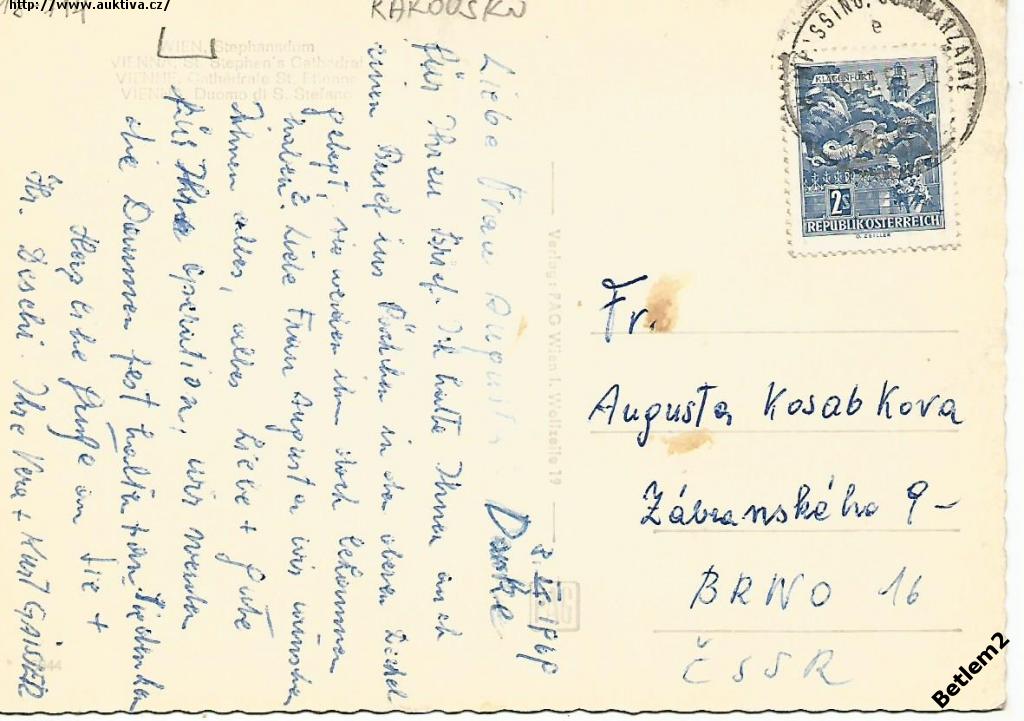 http://www.auktiva.cz/
RAKOUSKO
WIEN, Stephansdom
VIENNA, St. Stephen's Cathedral
VIENNE, Cathédrale St. Etienne
VIENNA, Duomo di S. Stefano
Liebe Frau Augusta! Danke
für Ihren Brief. Ich hatte Ihnen auch
einen Brief ins Päckchen in den oberen Deckel
gelegt, sie werden ihn doch bekommen
haben? Liebe Frau Augusta wir wünschen
Ihnen alles, alles Liebe + Gute
für Ihre operation, wir werden
die Daumen fest halten + an Sie denken
Herzliche Grüße an Sie +
Hr. Ihre Vera + Kurt
Verlag: PAG Wien I. Wollzeile 19
PAG
SCHWARZATAL
e
KLAGENFURT
2S
REPUBLIK ÖSTERREICH
Fr.
Augusta Kosabkova
Zábranského 9-
BRNO 16
ČSSR
Betlem2